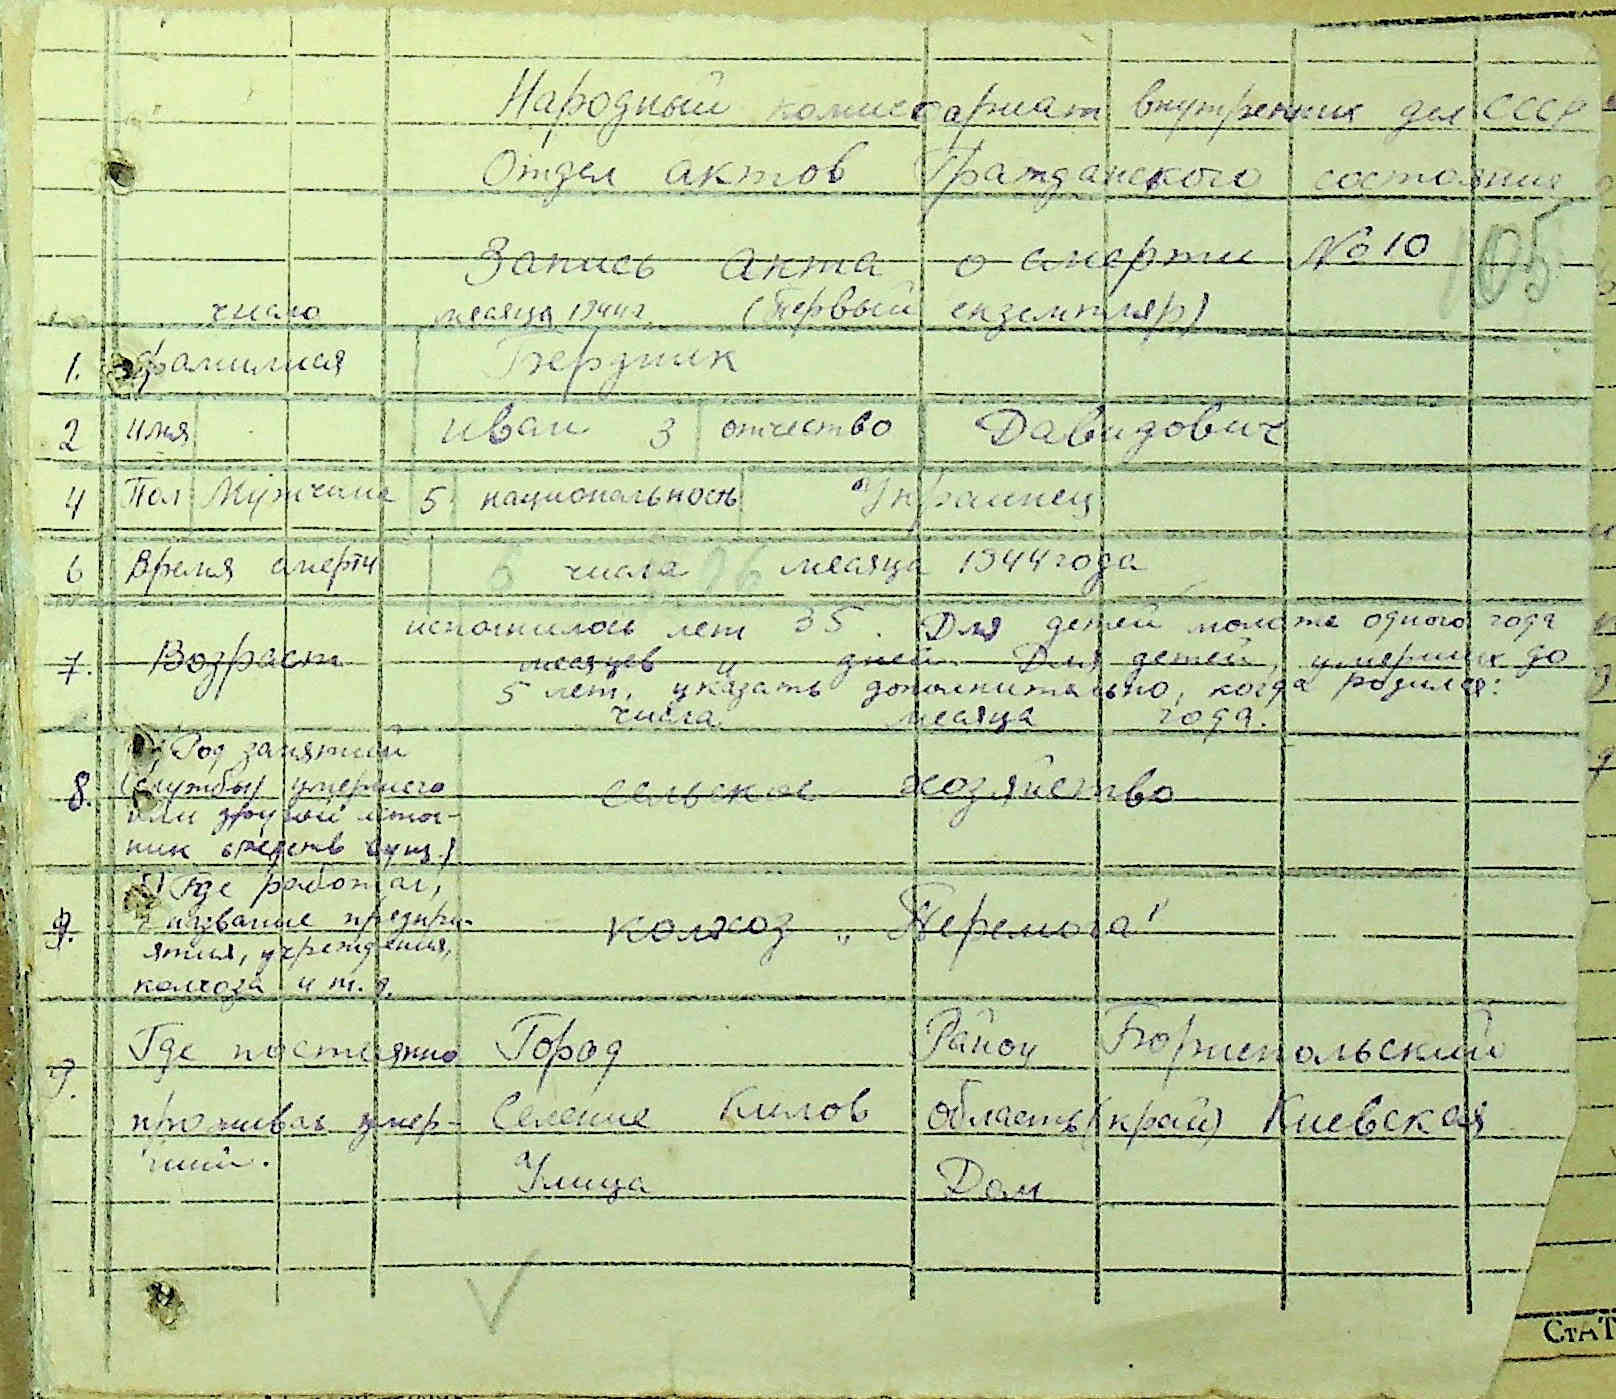 Народный комиссариат внутренних дел СССР
Отдел актов Гражданского состояния
Запись акта о смерти №10 105
число месяца 1944 г. (Первый екземпляр)
1. фамилия Бердник
2 имя Иван 3 отчество Давидович
4 Пол Мужчина 5 национальность Украинец
6 Время смерти 6 числа 06 месяца 1944 года
исполнилось лет 35. Для детей моложе одного года
7. Возраст месяцев и дней. Для детей, умерших до
5 лет, указать дополнительно, когда родился:
числа месяца года.
а) Род занятий
8. (службы умершего сельское хозяйство
или другой источ-
ник средств сущ.)
б) Где работал,
9. название предпри- колхоз „Перемога"
ятия, учреждения,
колхоза и т.д.
9. Где постоянно Город Район Бориспольский
проживал умер- Селение Кийлов область (край) Киевская
ший. Улица Дом
СтАТ